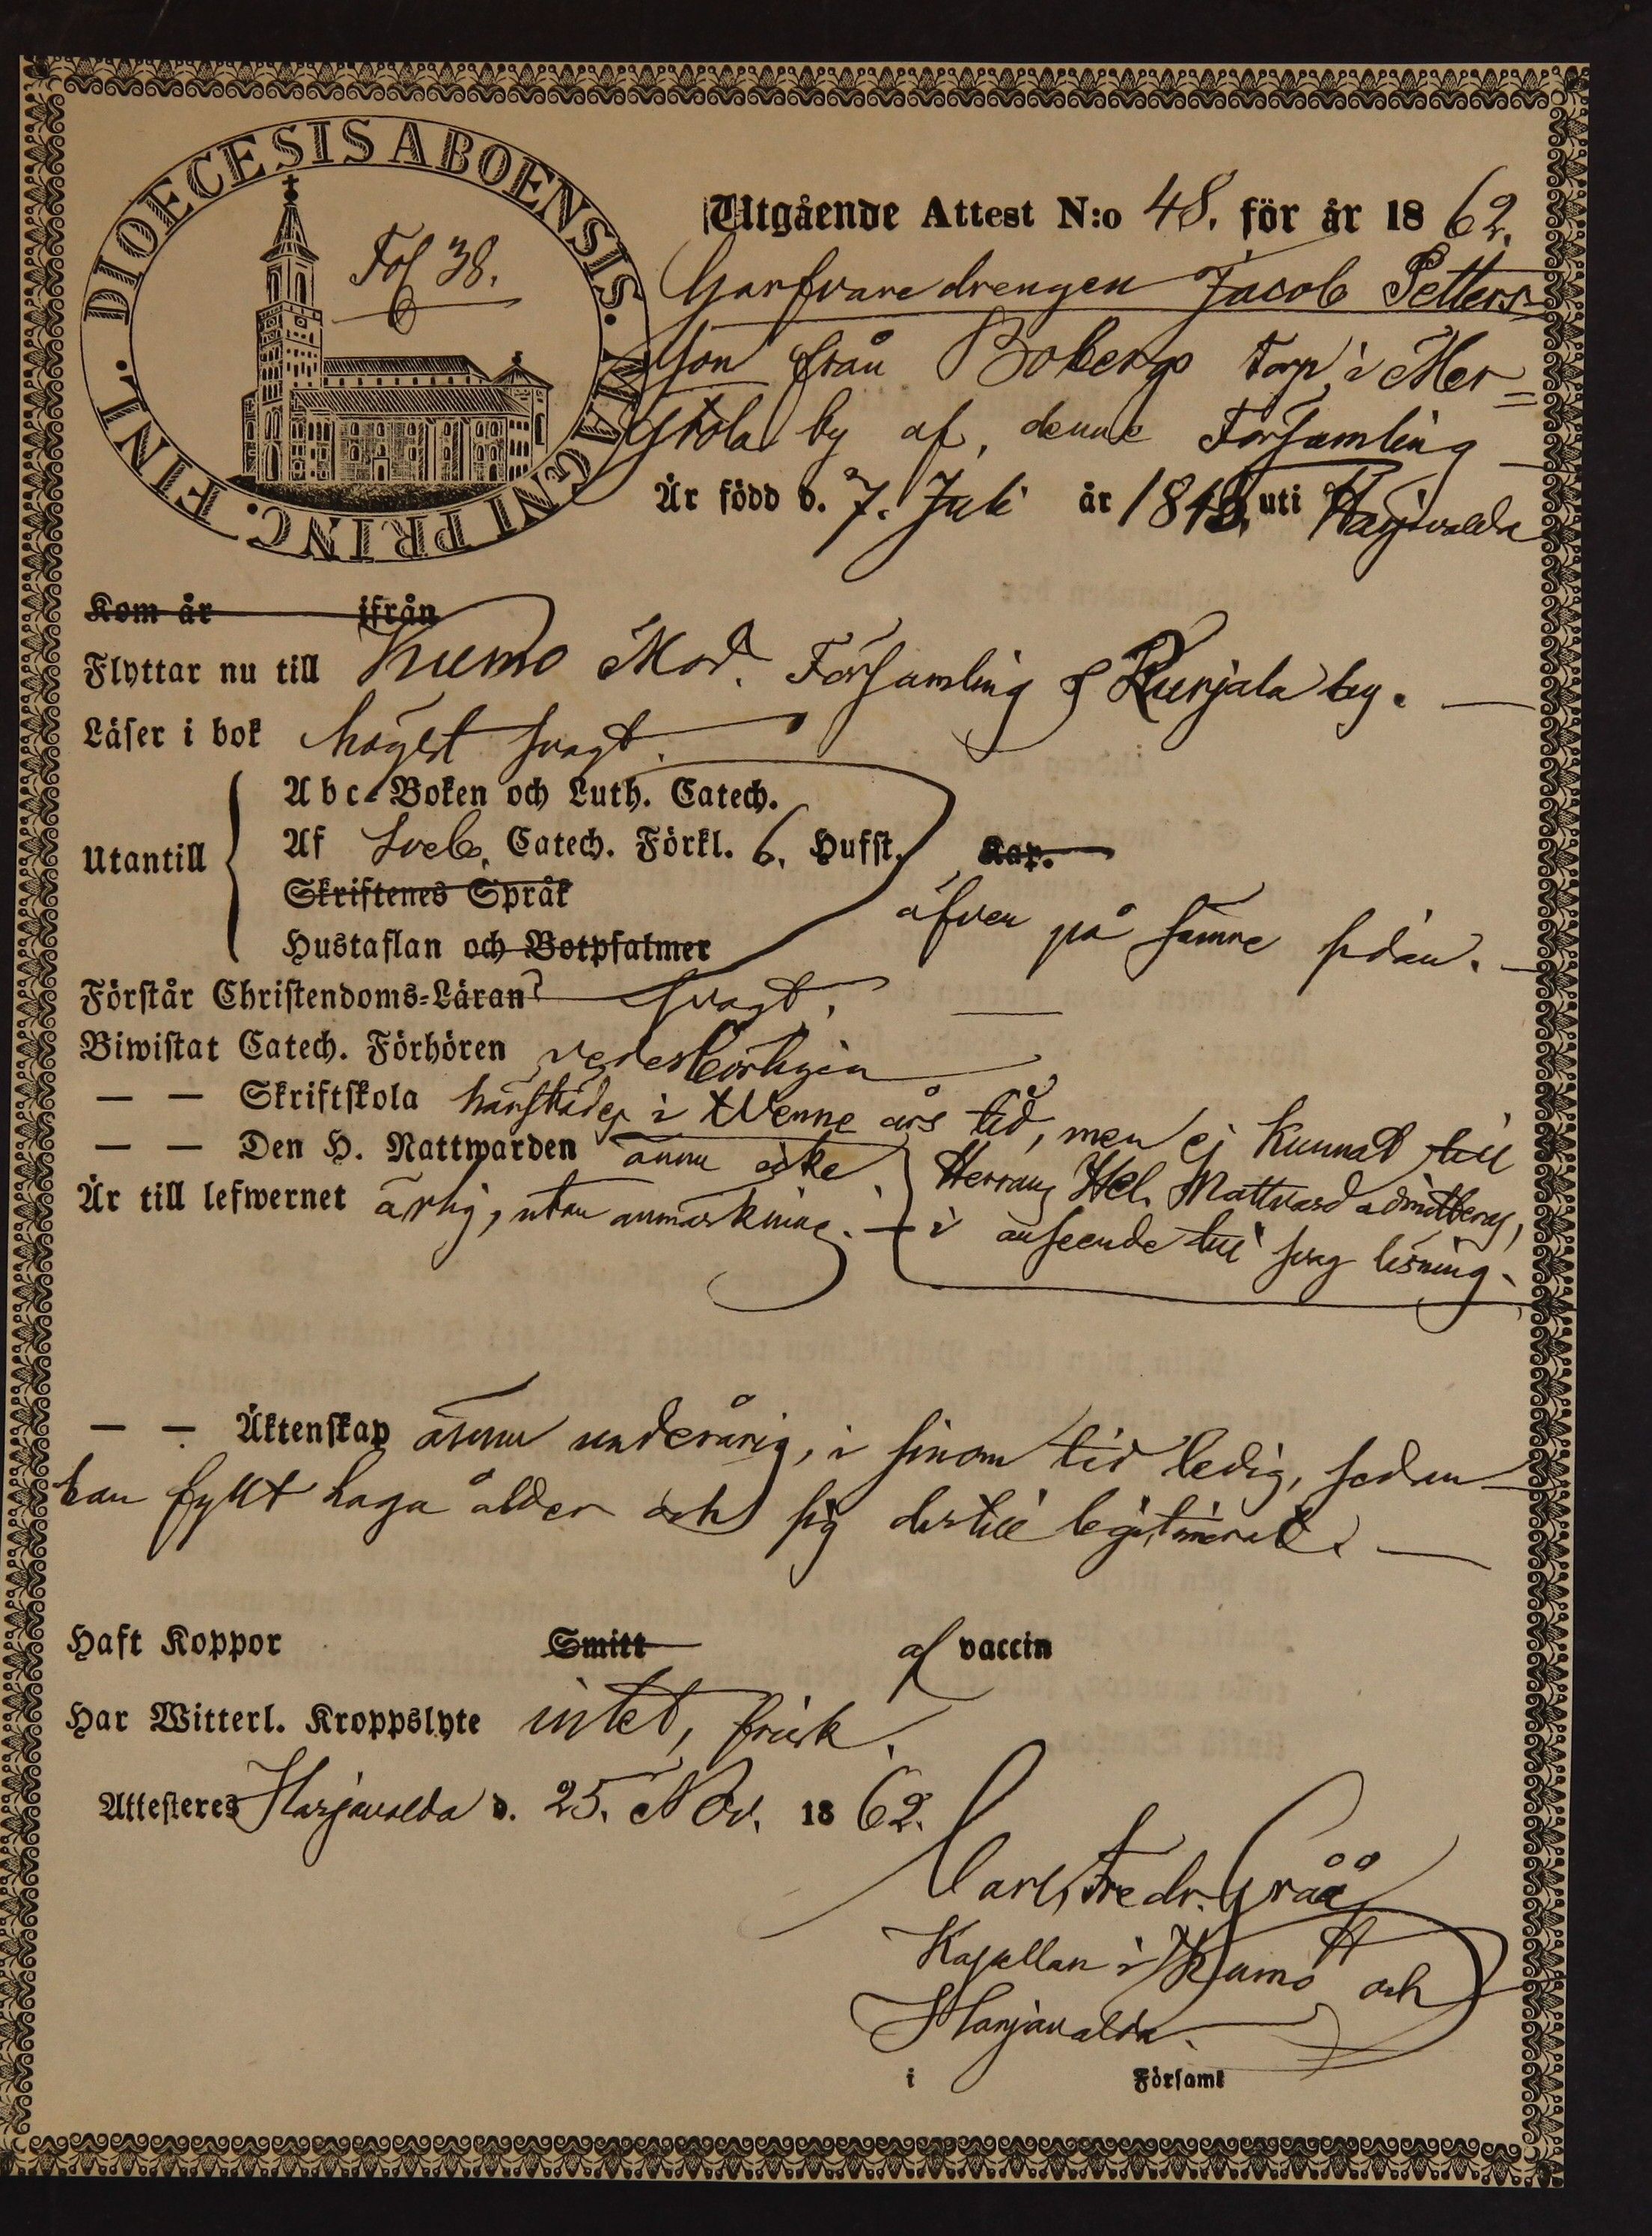 DIOECESIS ABOENSIS. MAGNI PRINC. FINL.
Fol 38.
Utgående Attest N:o 48. för år 1862.
Garfvaredrengen Jacob Petters-
son från Bobergs torp i Mer=
stola by af denne Församling
Är född d. 7. Juli år 184 uti Harjavalda
Kom år ifrån
Flyttar nu till Kumo Mod. Församling & Kurjala by.
Läser i bok högst svagt.
Utantill
Abc-Boken och Luth. Catech.
Af Sveb. Catech. Förkl. 6. Hufst. Kap.
Skriftenes Språk
Hustaflan och Botpsalmer
äfven på samme sidan.
Förstår Christendoms-Läran svagt.
Biwistat Catech. Förhören vederbörligen
— — Skriftskola härstädes i tvenne års tid, men ej kunnat till
— — Den H. Nattwarden ännu icke. Herrans Hel. Nattvard admitteras,
Är till lefwernet ärlig, utan anmärkning. — i anseende till svag läsning.
— — Äktenskap ännu underårig, i sinom tid ledig, sedan
han fyllt laga ålder och sig dertill legitimerat. —
Haft Koppor Smitt af vaccin
Har Witterl. Kroppslyte intet, frisk.
Attesteres Harjavalda d. 25. Nov. 1862.
Carl Fredr. Gråå
Kapellan i Kumo och
Harjavalda.
i Församl